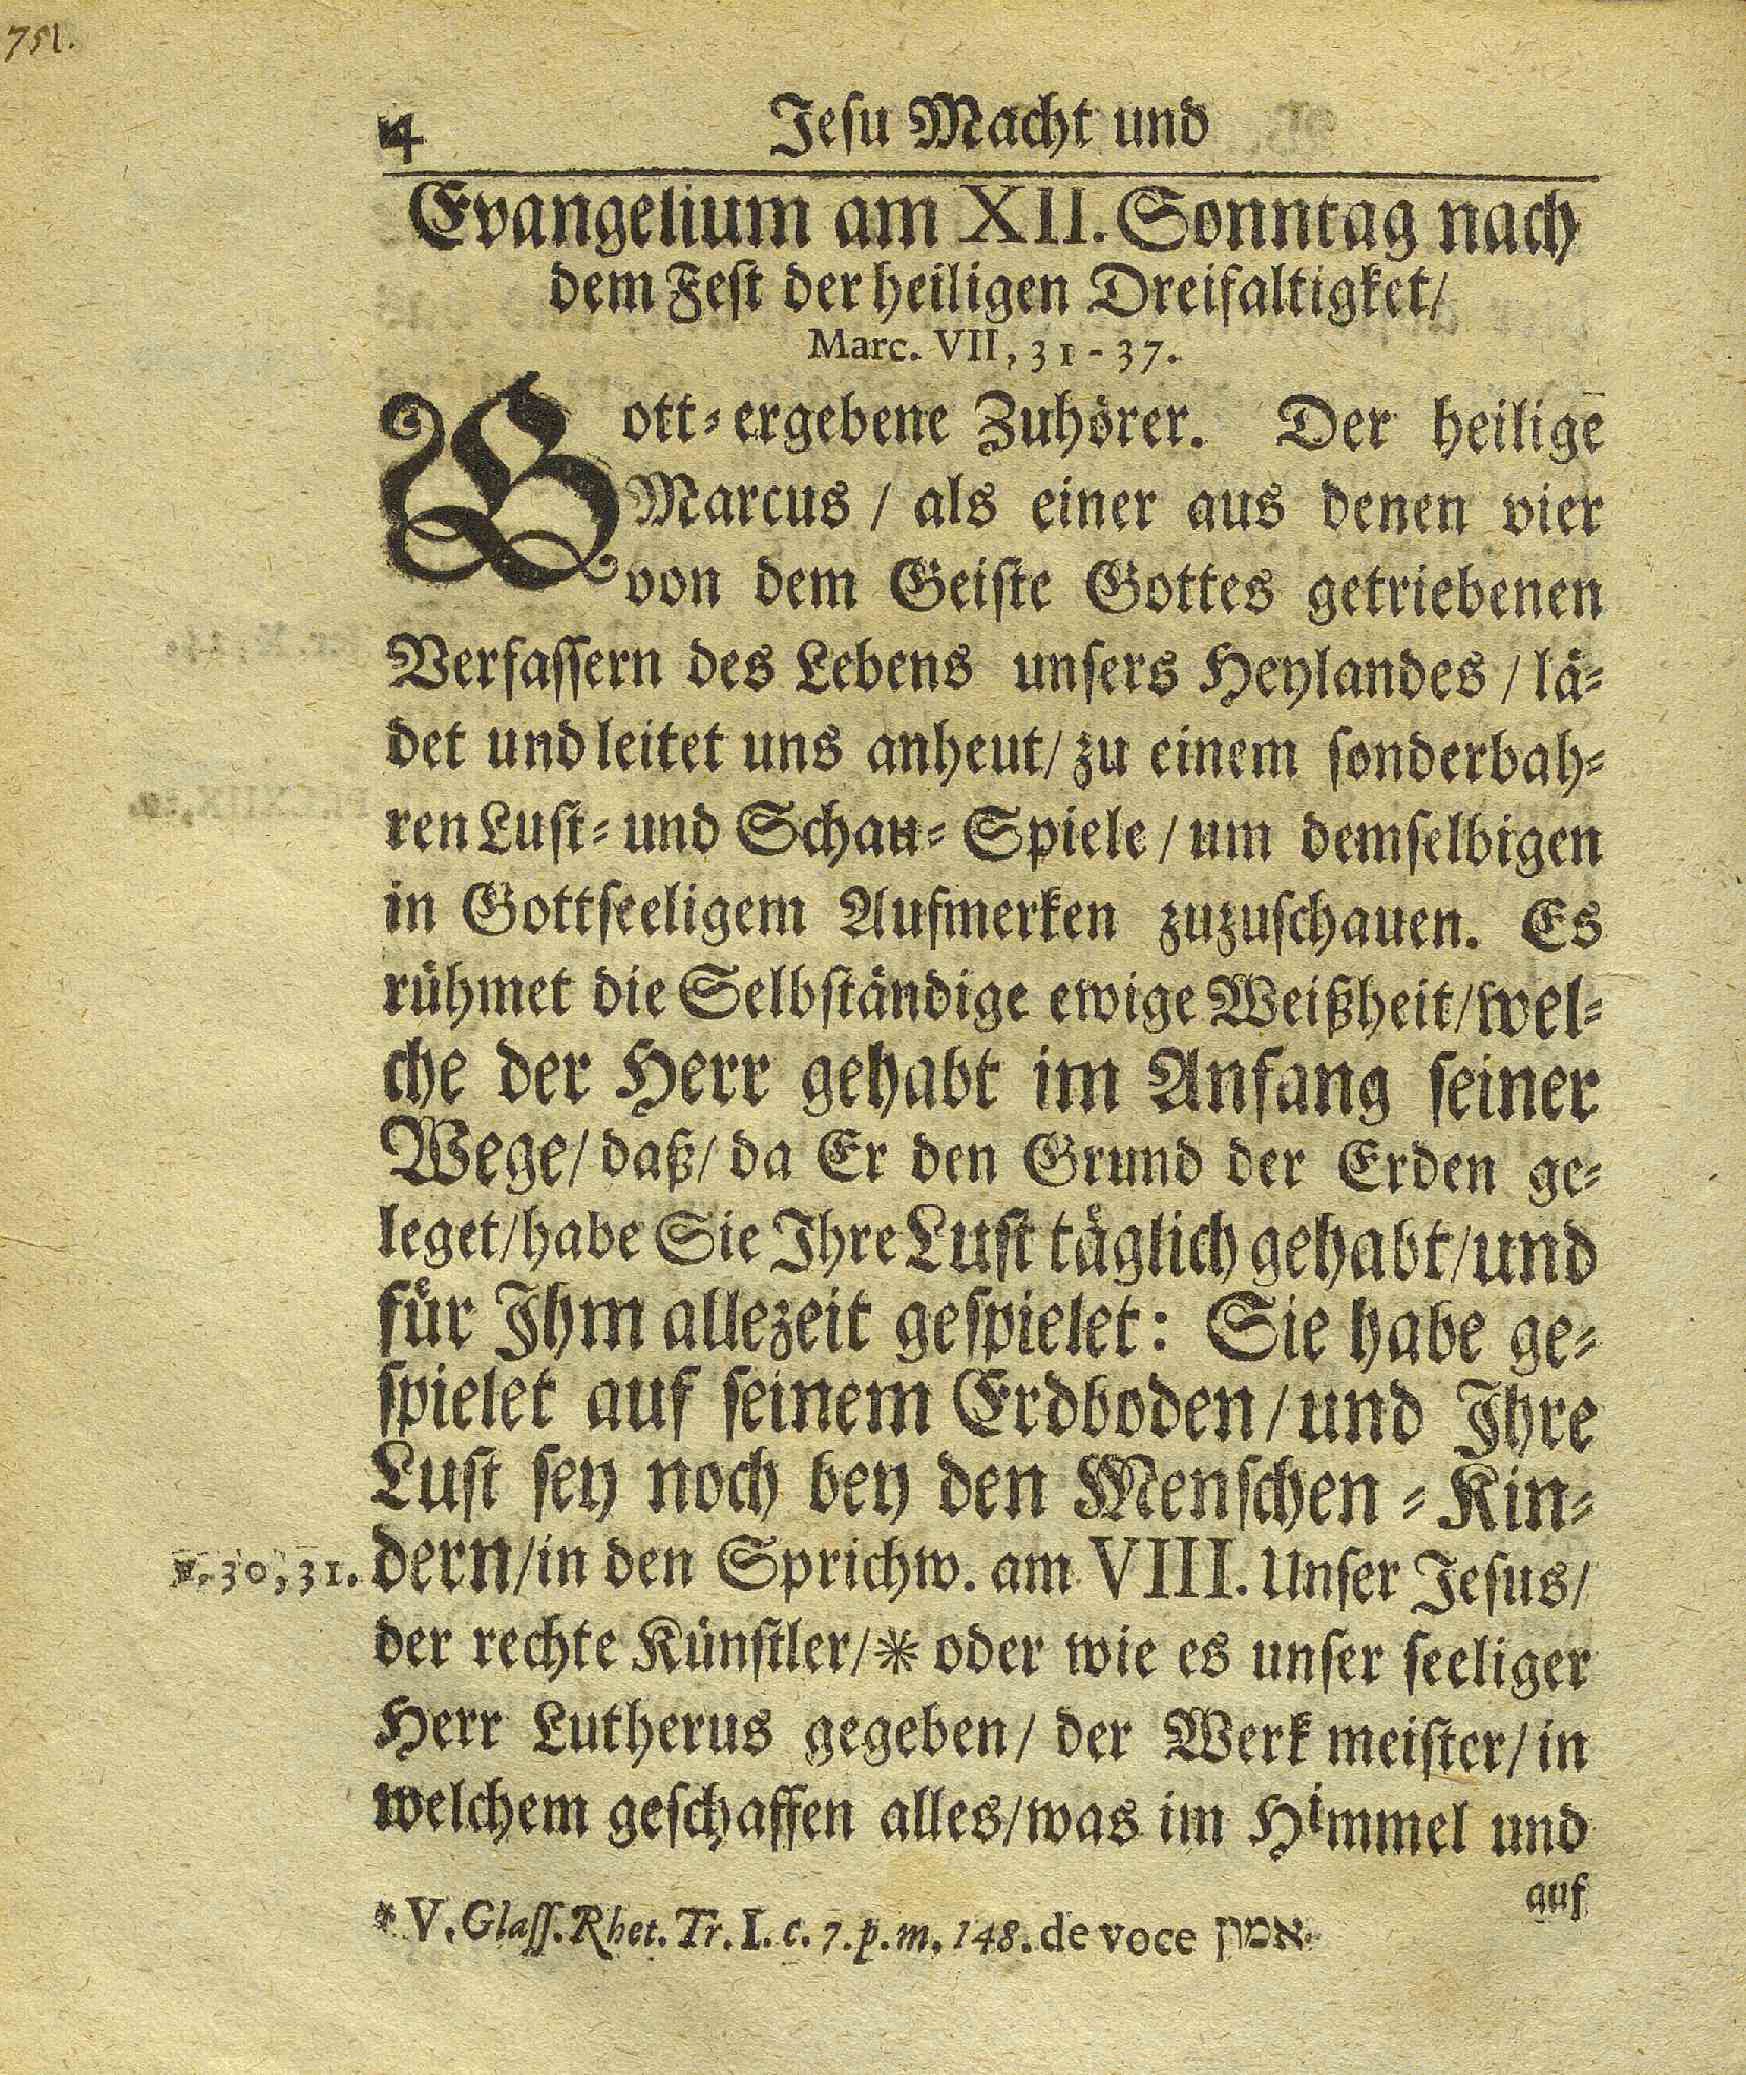 751.
4 Jesu Macht und
Evangelium am XII. Sonntag nach
dem Fest der heiligen Dreifaltigket/
Marc. VII, 31-37.
Gott-ergebene Zuhörer. Der heilige
Marcus / als einer aus denen vier
von dem Geiste Gottes getriebenen
Verfassern des Lebens unsers Heylandes / lä-
det und leitet uns anheut/ zu einem sonderbah-
ren Lust- und Schau-Spiele / um demselbigen
in Gottseeligem Aufmerken zuzuschauen. Es
rühmet die Selbständige ewige Weißheit/wel-
che der Herr gehabt im Anfang seiner
Wege/ daß/ da Er den Grund der Erden ge-
leget/habe Sie Ihre Lust täglich gehabt/und
für Ihm allezeit gespielet: Sie habe ge-
spielet auf seinem Erdboden/und Ihre
Lust sey noch bey den Menschen-Kin-
v. 30, 31. dern/in den Sprichw. am VIII. Unser Jesus/
der rechte Künstler/* oder wie es unser seeliger
Herr Lutherus gegeben/ der Werk meister/in
welchem geschaffen alles/was im Himmel und
auf
* V. Glass. Rhet. Tr. I. c. 7. p. m. 148. de voce אמון.